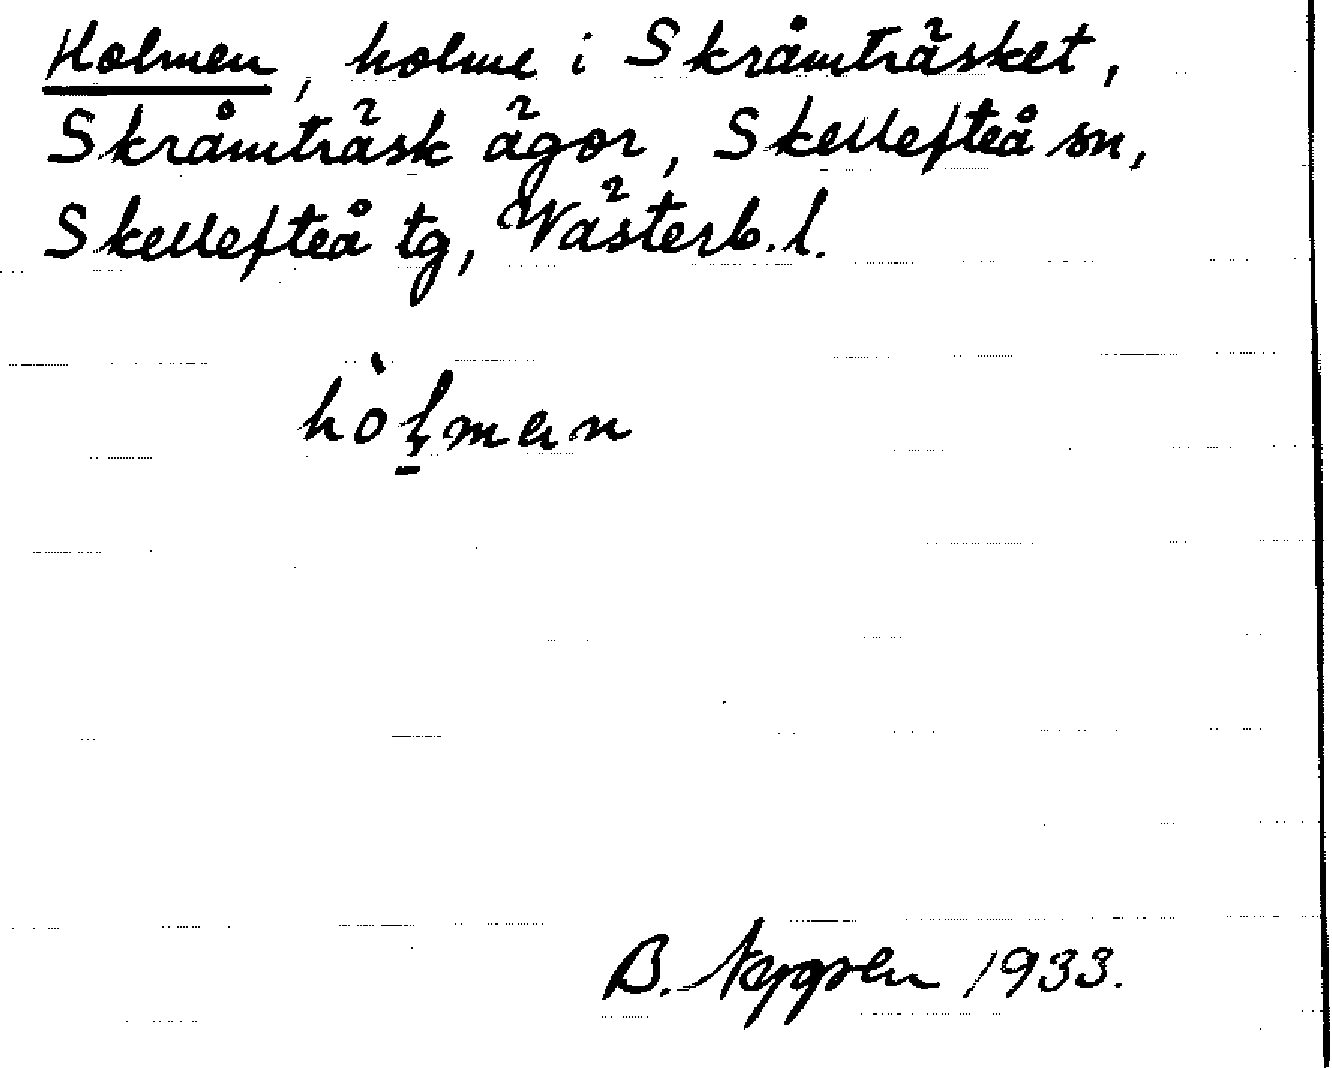 Holmen, holme i Skråmträsket,
Skråmträsk ägor, Skellefteå sn,
Skellefteå tg, Västerb. l.
hòḻmen
B. Nygren 1933.